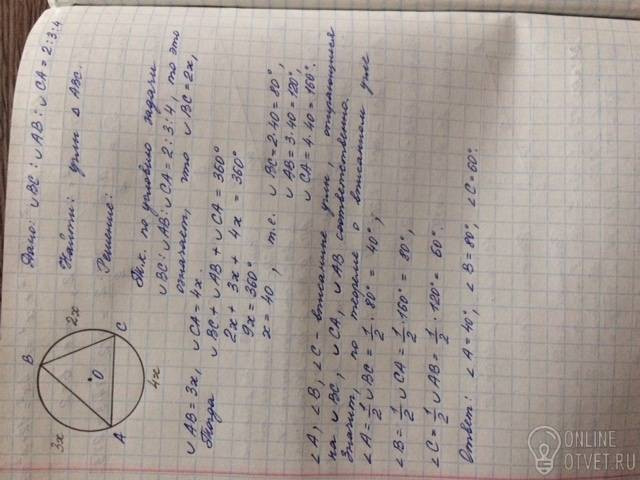 Дано: ∪BC : ∪AB : ∪CA = 2 : 3 : 4
Найти: углы Δ ABC.
Решение:
B
2x
3x
O
A
C
4x
Т.к. по условию задачи
∪BC : ∪AB : ∪CA = 2 : 3 : 4, то это
означает, что ∪BC = 2x,
∪AB = 3x, ∪CA = 4x.
Тогда ∪BC + ∪AB + ∪CA = 360°
2x + 3x + 4x = 360°
9x = 360°
x = 40, т.е. ∪BC = 2·40 = 80°,
∪AB = 3·40 = 120°,
∪CA = 4·40 = 160°.
∠A, ∠B, ∠C - вписанные углы, опирающиеся
на ∪BC, ∪CA, ∪AB соответственно.
Значит, по теореме о вписанном угле
∠A = 1/2 ∪BC = 1/2 · 80° = 40°;
∠B = 1/2 ∪CA = 1/2 · 160° = 80°;
∠C = 1/2 ∪AB = 1/2 · 120° = 60°.
Ответ: ∠A = 40°, ∠B = 80°, ∠C = 60°.
ONLINE
OTVET.RU